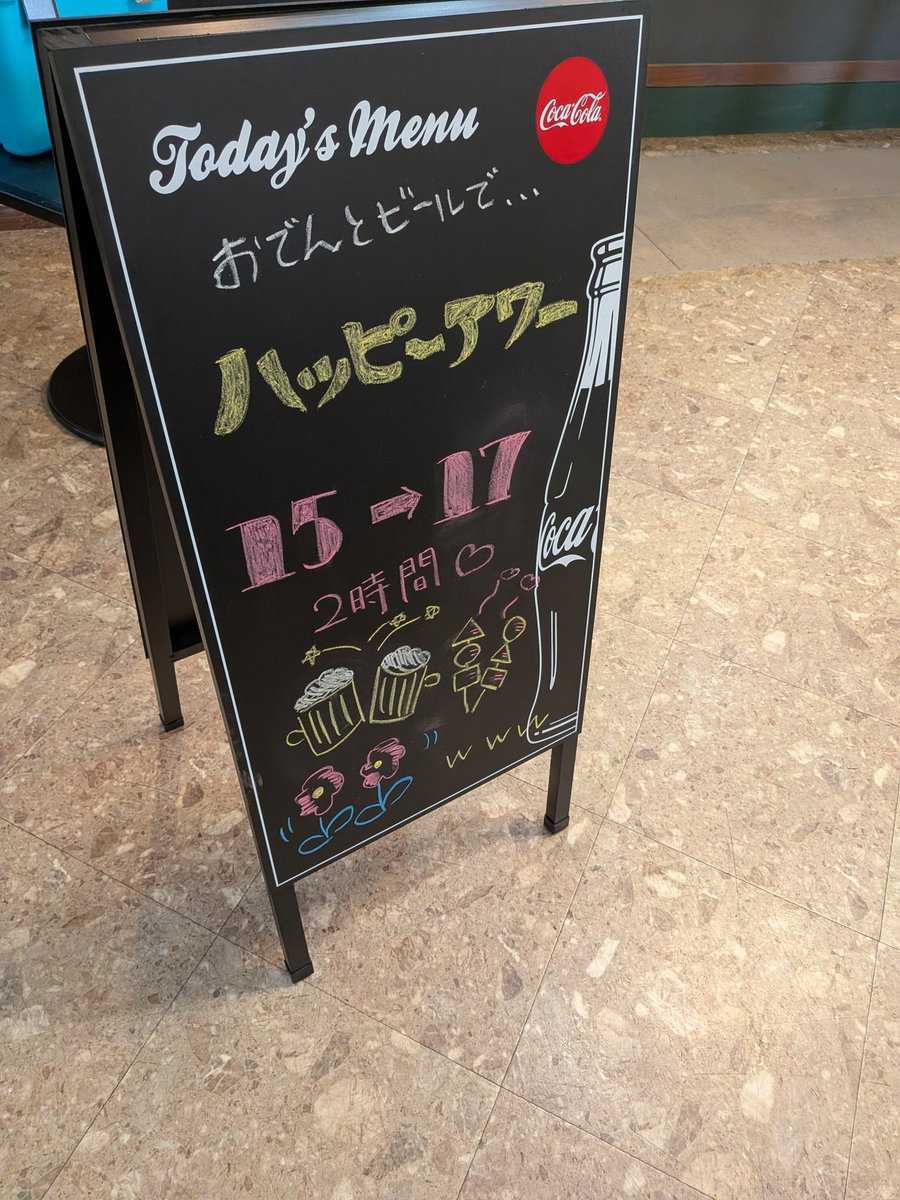 Today's Menu
Coca-Cola
おでんとビールで...
ハッピーアワー
15→17
2時間♡
Coca-C
w w w